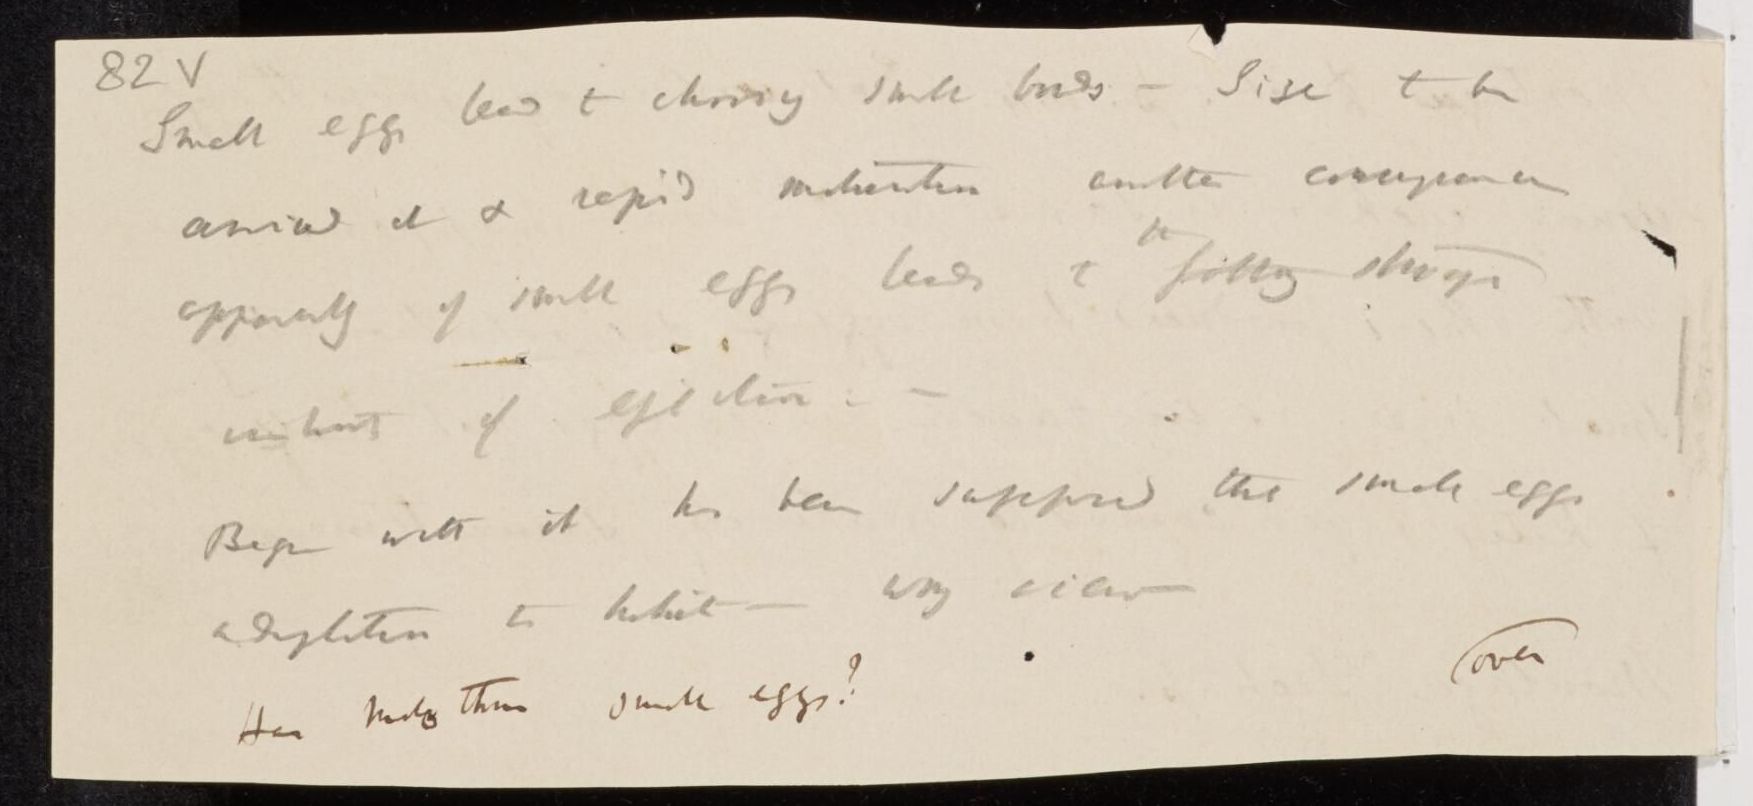 82 V
Small eggs lead to choosing small birds — Size to be
arrived at & rapid maturation another consequence
apparently of small eggs leads to the strange
instinct of ejection. —
Begin with it has been supposed that small eggs
adaptation to habit — my view
Has Molothrus small eggs?
(over